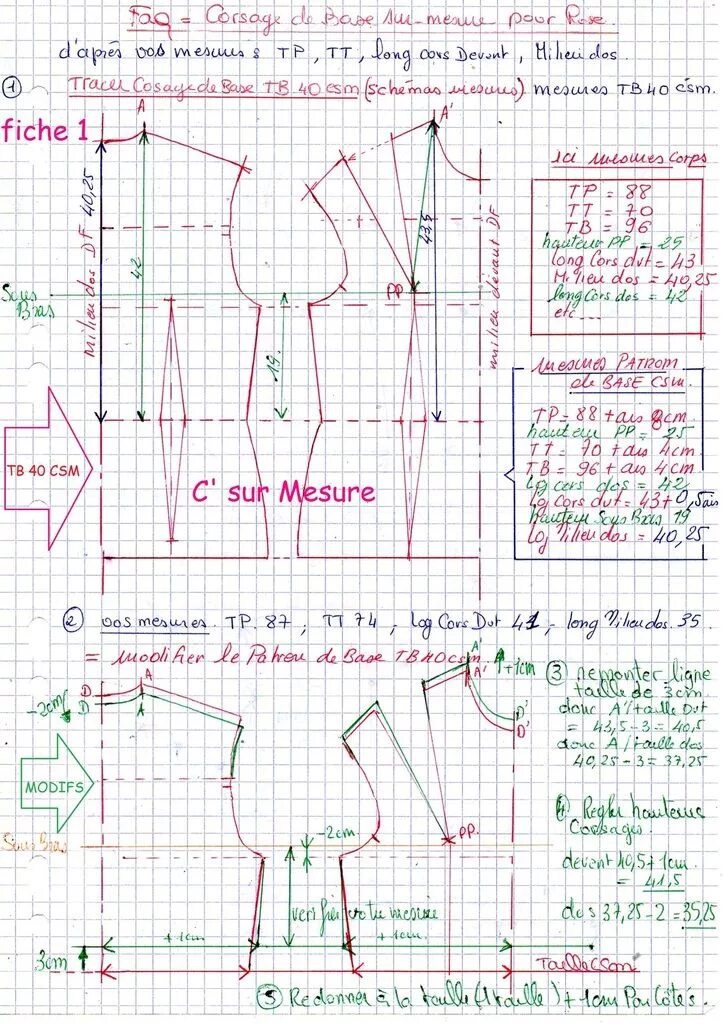 Faq = Corsage de Base sur-mesure pour Rose.
d'après vos mesures TP, TT, long cors Devant, Milieu dos.
① Tracer Cosage de Base TB 40 csm (schémas mesures) mesures TB 40 csm.
fiche 1
A
A'
ici mesures corps
TP = 88
TT = 70
TB = 96
hauteur PP = 25
long Cors dvt = 43
Milieu dos = 40,25
long Cors dos = 42
etc...
milieu dos DF 40,25
42
43,5
milieu devant DF
PP
Sous Bras
19.
mesures PATRON
de BASE CSM.
TP = 88 + ais 8cm
hauteur PP = 25
TT = 70 + ais 4cm
TB = 96 + ais 4cm
Lg cors dos = 42
Lg Cors dvt = 43 + 0,5 ais
hauteur Sous Bras 19
Lg Milieu dos = 40,25
TB 40 CSM
C' sur Mesure
② vos mesures. TP. 87, TT 74, log Cors Dvt 41, - long Milieu dos. 35
= modifier le Patron de Base TB 40 csm.
A
A
D
D
-2cm
A'
A'
+1cm
D'
D'
③ remonter ligne
taille de 3cm.
donc A'/taille Dvt
= 43,5 - 3 = 40,5
donc A/taille dos
40,25 - 3 = 37,25
MODIFS
④ Regler hauteurs
Corsages.
devant 40,5 + 1cm
= 41,5
dos 37,25 - 2 = 35,25
Sous Bras
-2cm
PP.
verifier votre mesure
+1cm
+1cm
3cm
Taille CSM
⑤ Redonner à la taille (1 taille) + 1cm Par Côtés.